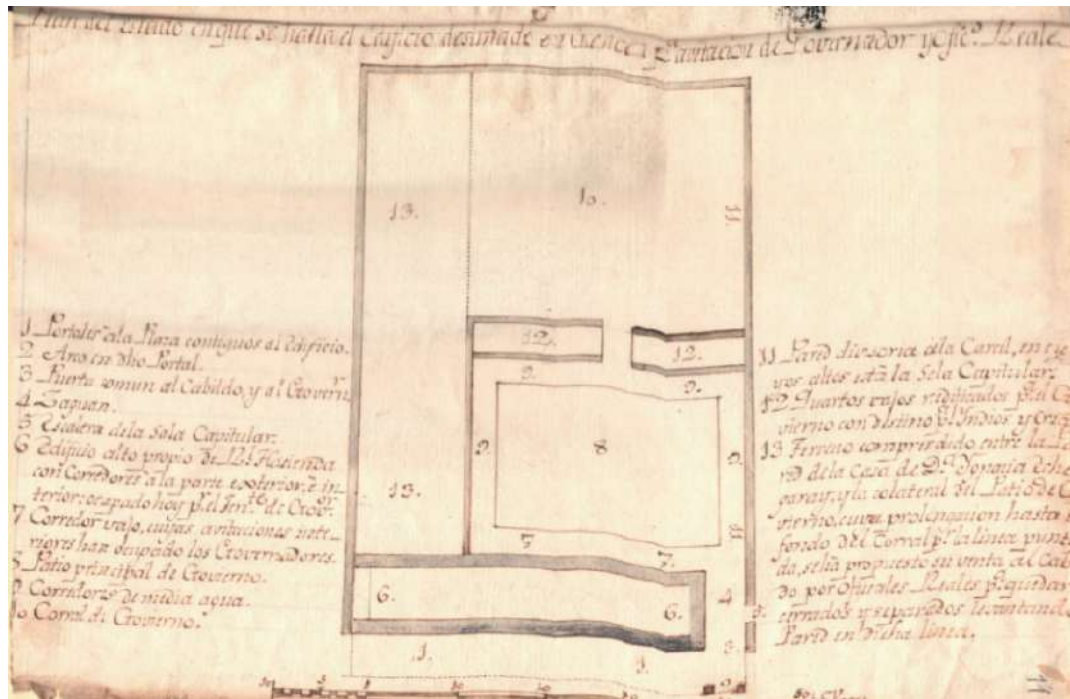 Plan del estado en que se halla el Edificio destinado en Cuenca Havitacion de Governador y ofic.s Reale
13.
10.
11.
12.
12.
9.
9.
9.
8
9.
13.
11.
7
7.
6.
6.
4
5.
3.
1.
1.
2
1 Portales a la Plaza contiguos al Edificio.
2 Arco en dho Portal.
3 Puerta comun al Cabildo, y al Govierno
4 Zaguan.
5 Escalera de la Sala Capitular.
6 Edificio alto propio de Rl Hacienda
con Corredores a la parte exterior, e in-
terior: ocupado hoy pr el Ten.te de Govor
7 Corredor vajo, cuijas avitaciones inte-
riores han ocupado los Governadores.
8 Patio principal de Govierno.
9 Corredores de media agua.
10 Corral de Govierno.
11 Pared divisoria ala Carcel, en cu
yos altos está la Sala Capitular.
12 Quartos vajos redificados pr el
vierno con destino pa Indios y
13 Terreno comprendido entre la
red de la Casa de Da
garay, y la colateral del Patio de
vierno, cuya prolongacion hasta
fondo del Corral pr la linea punt
da, se ha propuesto en venta al Cab
do por Ofiziales Reales
cerrados y separados levantando
Pared en dicha linea.